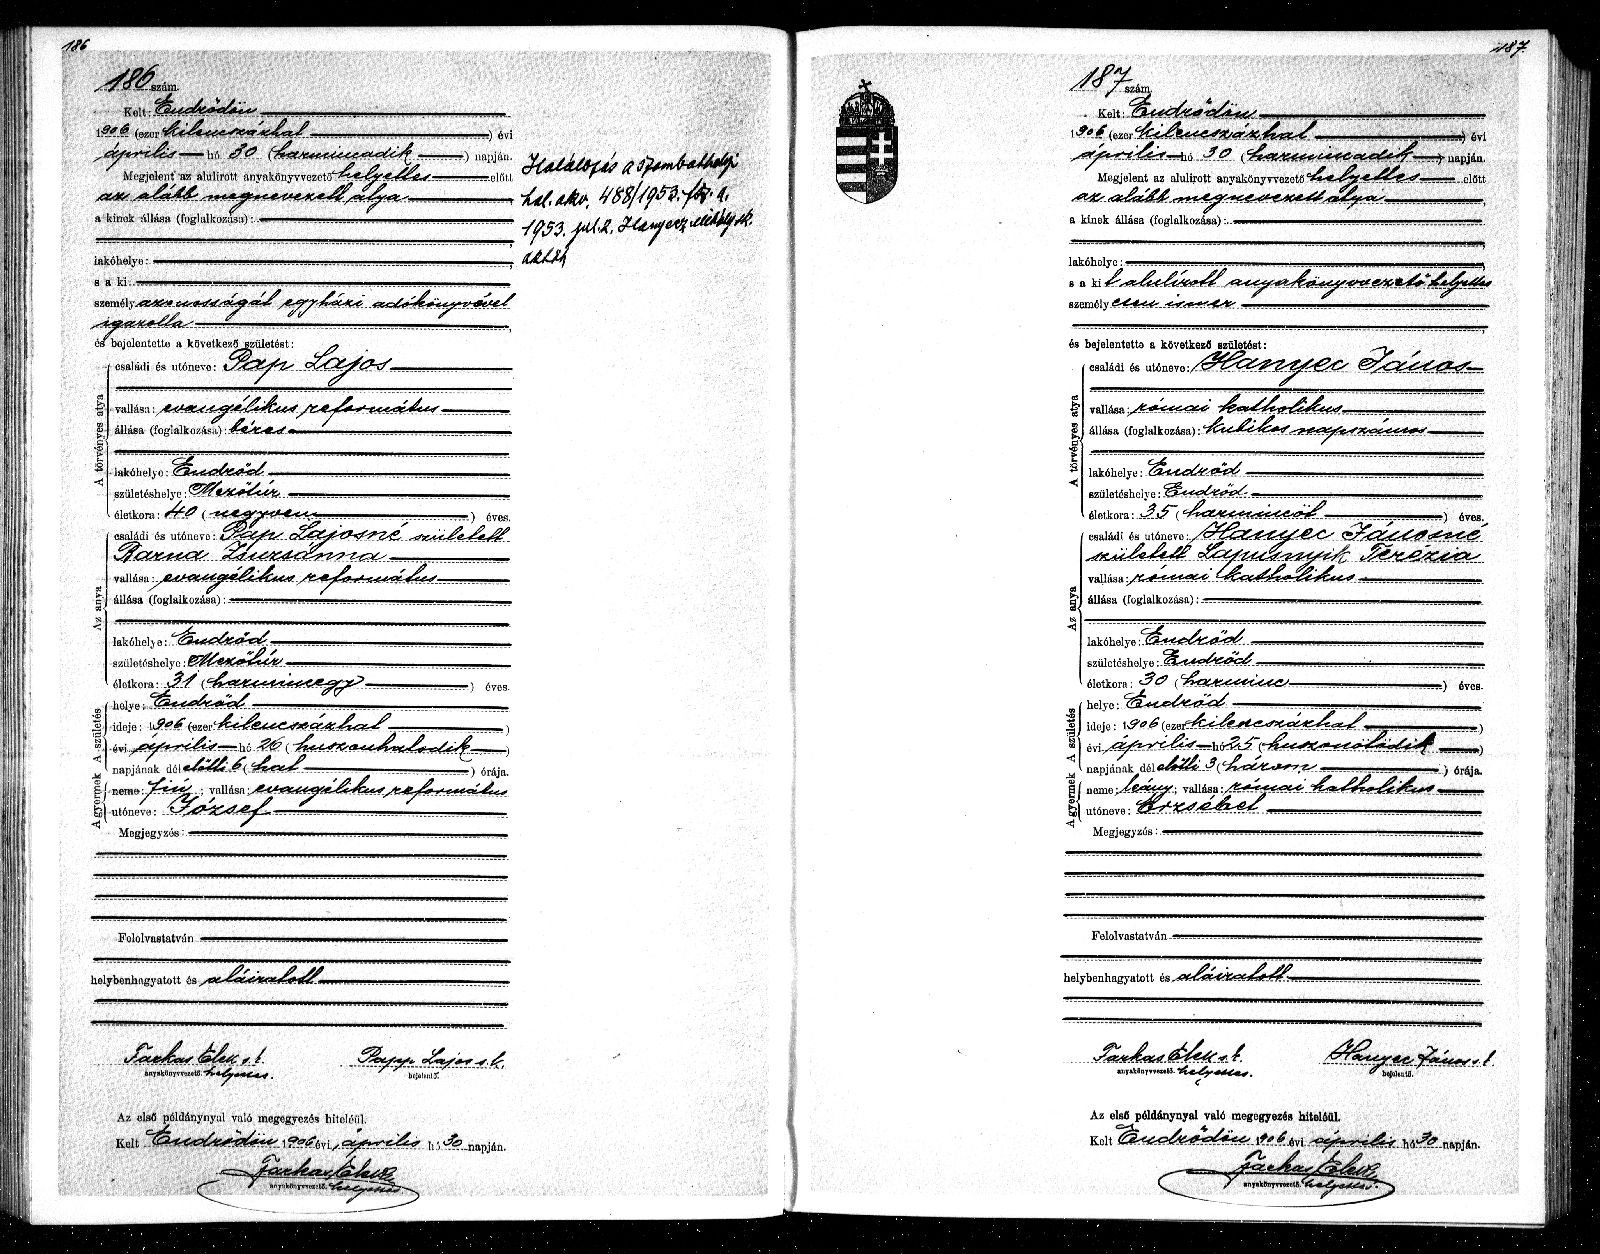 186
186 szám.
Kelt: Endrődön
1906 (ezer kilencszázhat) évi
április hó 30 (harmincadik) napján.
Megjelent az alulirott anyakönyvvezető helyettes előtt
az alább megnevezett atya
a kinek állása (foglalkozása):
lakóhelye:
s a ki
személyazonosságát egyházi adókönyvével
igazolta
és bejelentette a következő születést:
A törvényes atya
családi és utóneve: Pap Lajos
vallása: evangélikus református
állása (foglalkozása): béres
lakóhelye: Endrőd
születéshelye: Mezőtúr
életkora: 40 (negyven) éves.
Az anya
családi és utóneve: Pap Lajosné született
Barna Zsuzsánna
vallása: evangélikus református
állása (foglalkozása):
lakóhelye: Endrőd
születéshelye: Mezőtúr
életkora: 31 (harmincegy) éves.
A születés
helye: Endrőd
ideje: 1906 (ezer kilencszázhat)
évi április hó 26 (huszonhatodik)
napjának dél előtti 6 (hat) órája.
A gyermek
neme: fiú; vallása: evangélikus református
utóneve: József
Megjegyzés:
Felolvastatván
helybenhagyatott és aláiratott
Farkas Elek s. k. Papp Lajos s. k.
anyakönyvvezető. helyettes. bejelentő.
Az első példánynyal való megegyezés hiteléül.
Kelt Endrődön 1906 évi április hó 30 napján.
Farkas Elek
anyakönyvvezető. helyettes
Halálozás a Szombathelyi
hal. akv. 488/1953.
1953. jul. 2.
187.
187 szám.
Kelt: Endrődön
1906 (ezer kilencszázhat) évi
április hó 30 (harmincadik) napján.
Megjelent az alulirott anyakönyvvezető helyettes előtt
az alább megnevezett atya
a kinek állása (foglalkozása):
lakóhelye:
s a kit alulírott anyakönyvvezető helyettes
személyesen ismer
és bejelentette a következő születést:
A törvényes atya
családi és utóneve: Hanyec János
vallása: római katholikus
állása (foglalkozása): kubikos napszámos
lakóhelye: Endrőd
születéshelye: Endrőd
életkora: 35 (harmincöt) éves.
Az anya
családi és utóneve: Hanyec Jánosné
született Lapusnyik Terézia
vallása: római katholikus
állása (foglalkozása):
lakóhelye: Endrőd
születéshelye: Endrőd
életkora: 30 (harminc) éves.
A születés
helye: Endrőd
ideje: 1906 (ezer kilencszázhat)
évi április hó 25 (huszonötödik)
napjának dél előtti 3 (három) órája.
A gyermek
neme: leány; vallása: római katholikus
utóneve: Erzsébet
Megjegyzés:
Felolvastatván
helybenhagyatott és aláiratott
Farkas Elek s. k. Hanyec János s. k.
anyakönyvvezető. helyettes. bejelentő.
Az első példánynyal való megegyezés hiteléül.
Kelt Endrődön 1906 évi április hó 30 napján.
Farkas Elek
anyakönyvvezető. helyettes.